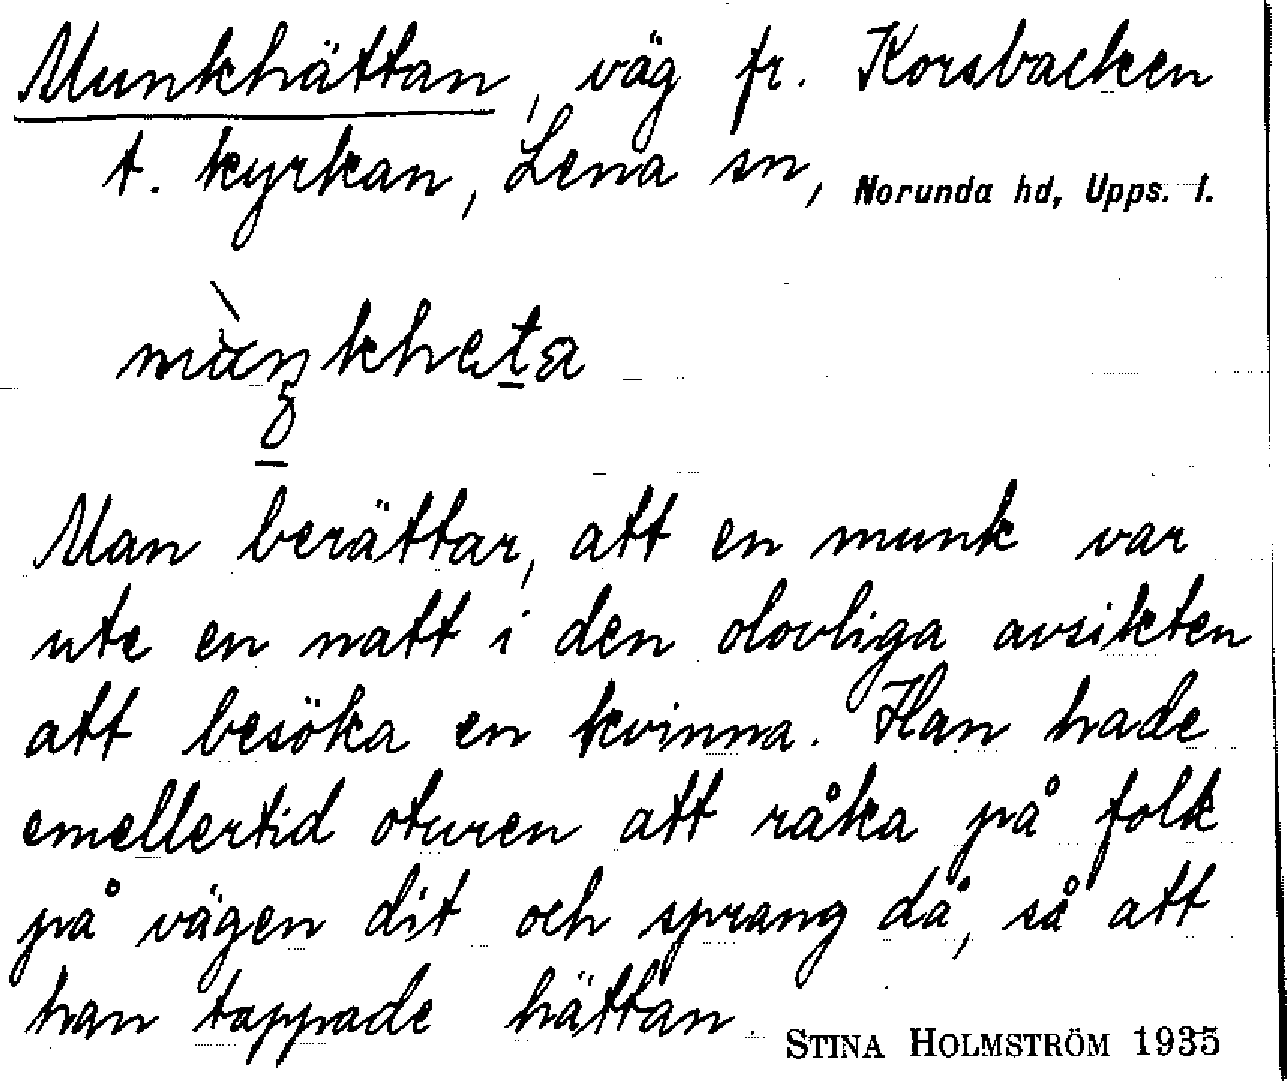 Munkhättan, väg fr. Korsbacken
t. kyrkan, Lena sn, Norunda hd, Upps. l.
Man berättar, att en munk var
ute en natt i den olovliga avsikten
att besöka en kvinna. Han hade
emellertid oturen att råka på folk
på vägen dit och sprang då, så att
han tappade hättan.
STINA HOLMSTRÖM 1935